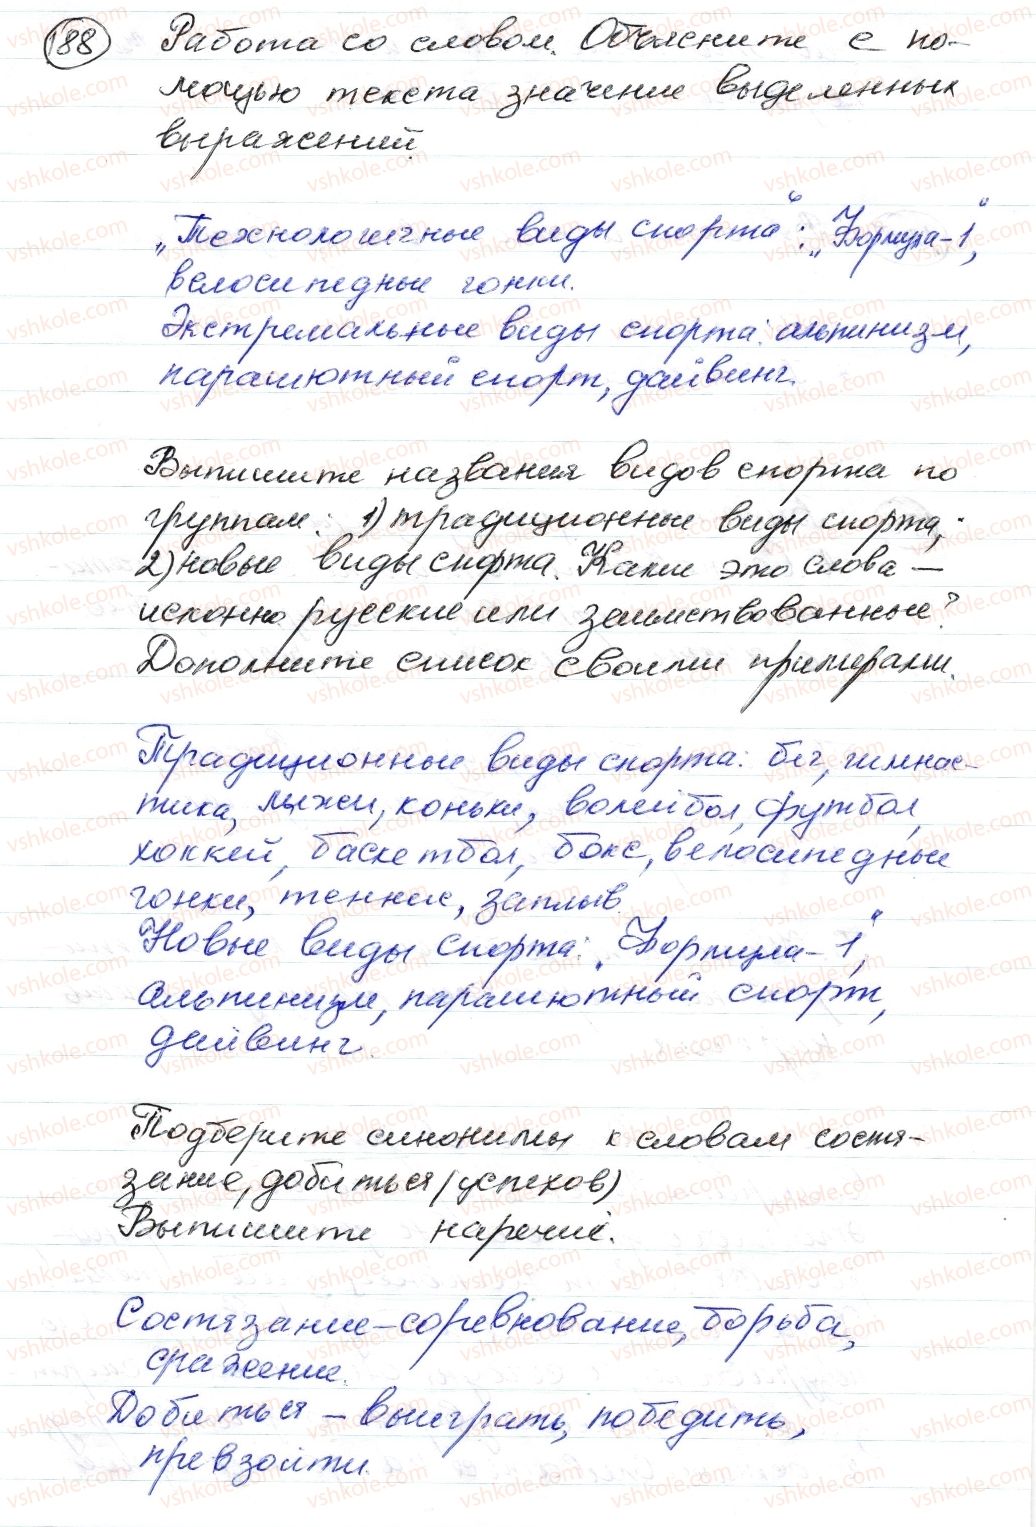 188 Работа со словом. Объясните с по-
мощью текста значение выделенных
выражений.
„Технологичные виды спорта“: „Формула-1“,
велосипедные гонки.
Экстремальные виды спорта: альпинизм,
парашютный спорт, дайвинг.
Выпишите названия видов спорта по
группам: 1) традиционные виды спорта;
2) новые виды спорта. Какие это слова —
исконно русские или заимствованные?
Дополните список своими примерами.
Традиционные виды спорта: бег, гимнас-
тика, лыжи, коньки, волейбол, футбол,
хоккей, баскетбол, бокс, велосипедные
гонки, теннис, заплыв.
Новые виды спорта: „Формула-1“,
альпинизм, парашютный спорт,
дайвинг.
Подберите синонимы к словам состя-
зание, добиться (успехов)
Выпишите наречие.
Состязание – соревнование, борьба,
сражение.
Добиться – выиграть, победить,
превзойти.